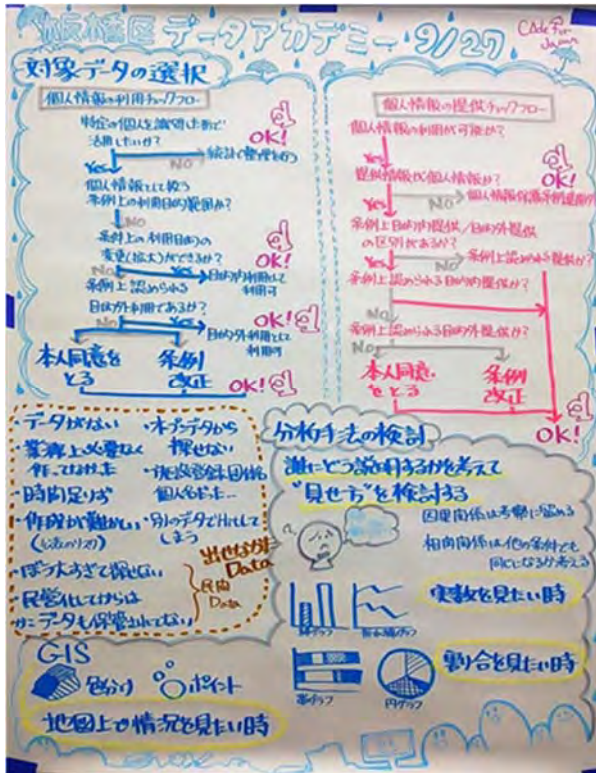 板橋区データアカデミー 9/27
Code for Japan
対象データの選択
個人情報の利用チェックフロー
特定の個人を識別した形で
活用したいか?
OK!
Yes
No
統計で整理を行う
個人情報として扱う
条例上の利用目的範囲か?
No
条例上の利用目的の
変更(拡大)ができるか?
OK!
No
Yes
目的内利用として
利用可
条例上認められる
目的外利用であるか?
OK!
No
Yes
目的外利用として
利用可
本人同意を
とる
条例
改正
OK!
個人情報の提供チェックフロー
個人情報の利用が可能か?
OK!
Yes
提供情報が個人情報か?
No
個人情報保護条例適用外
Yes
条例上目的内提供/目的外提供
の区別があるか?
Yes
No
条例上認められる提供か?
条例上認められる目的内提供か?
No
条例上認められる目的外提供か?
No
本人同意
をとる
条例
改正
OK!
・データがない
・業務上必要なく
作ってなかった
・時間足りず
・作成が難かしい
・ぼう大すぎて探せない
・民営化してからは
データも保管されてない
・オープンデータから
探せない
個人名だった…
・別のデータでHitして
しまう
出せなかった
Data
民間
Data
分析手法の検討
誰にどう説明するかを考えて
"見せ方"を検討する
因果関係は考察に留める
相関関係は他の条件でも
同じになるか考える
棒グラフ
折れ線グラフ
実数を見たい時
帯グラフ
円グラフ
割合を見たい時
GIS
色分け
ポイント
地図上で情況を見たい時